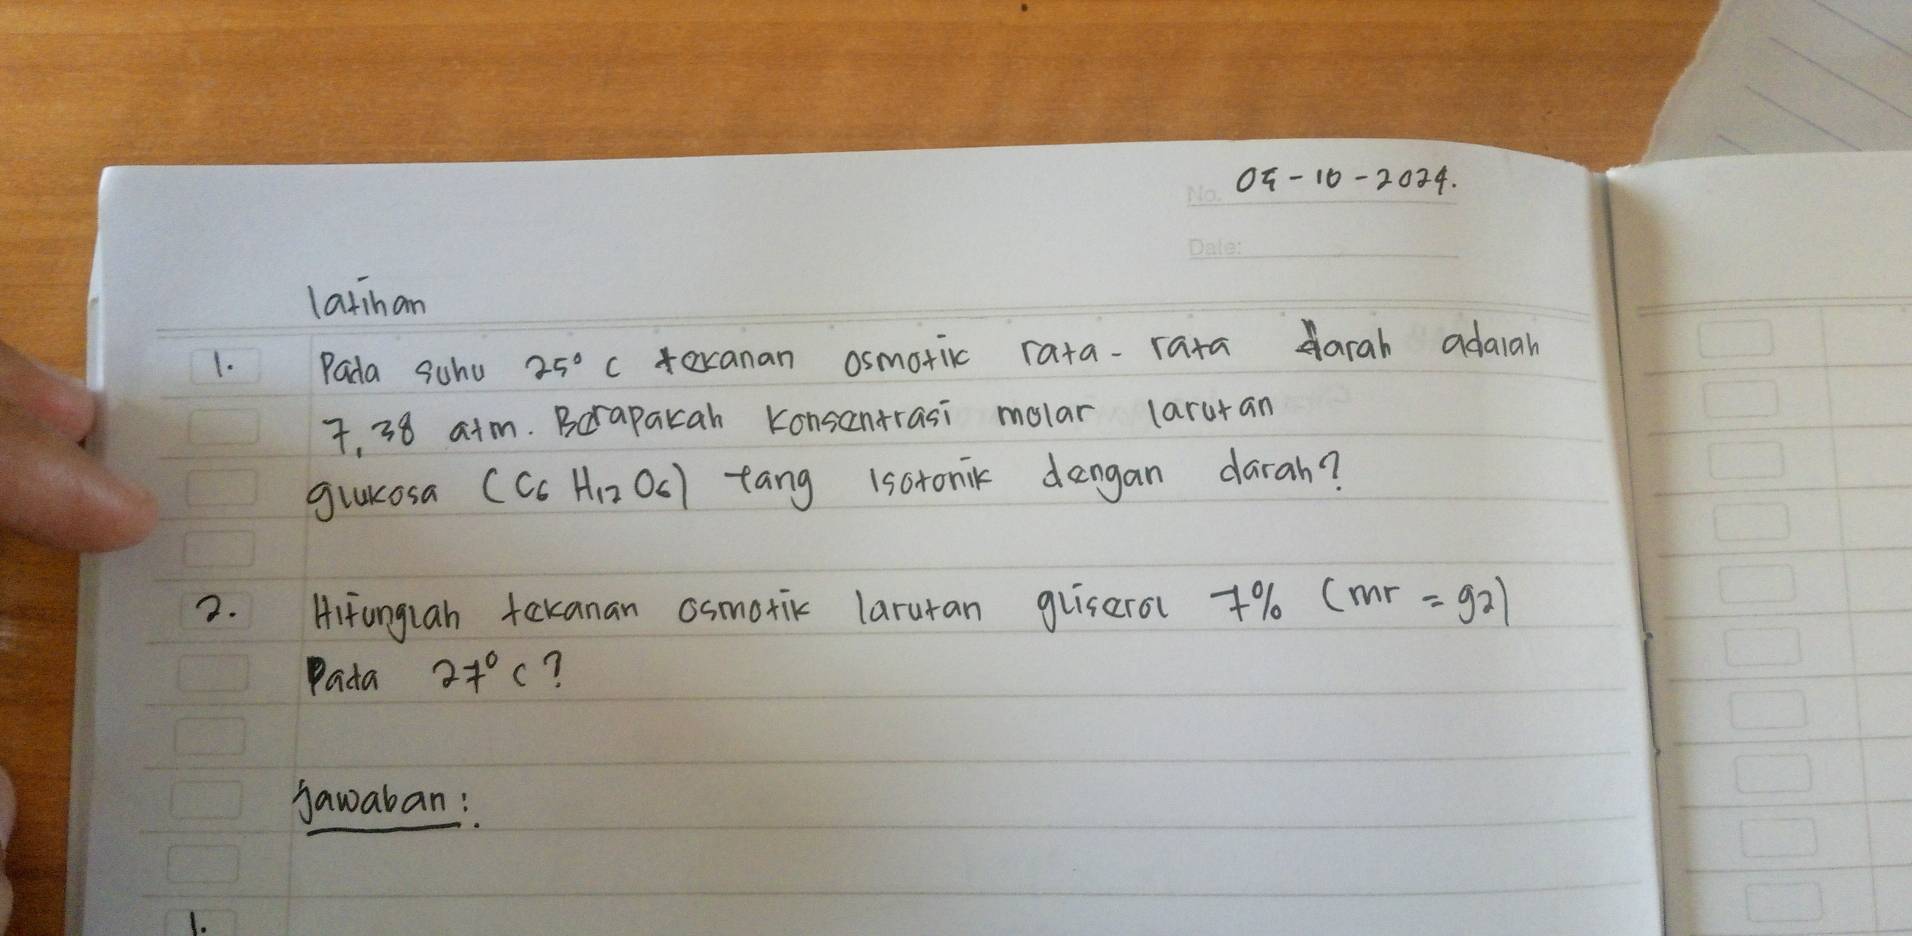 No. 05-10-2024.
Date:
latihan
1. Pada suhu 25° C tekanan osmotik rata-rata darah adalah
7,38 atm. Berapakah konsentrasi molar larutan
glukosa (C6 H12 O6) yang isotonik dengan darah?
2. Hitunglah tekanan osmotik larutan gliserol 7% (mr = 92)
Pada 27° C?
Jawaban:
1.